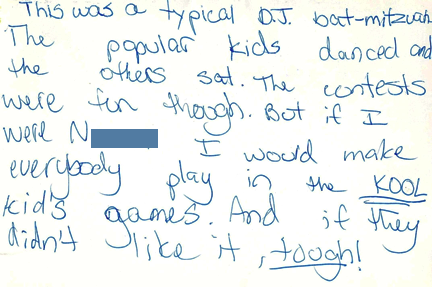 This was a typical D.J. bat-mitzvah.
The popular kids danced and
the others sat. The contests
were fun though. But if I
were N I would make
everybody play in the KOOL
kid's games. And if they
didn't like it, tough!